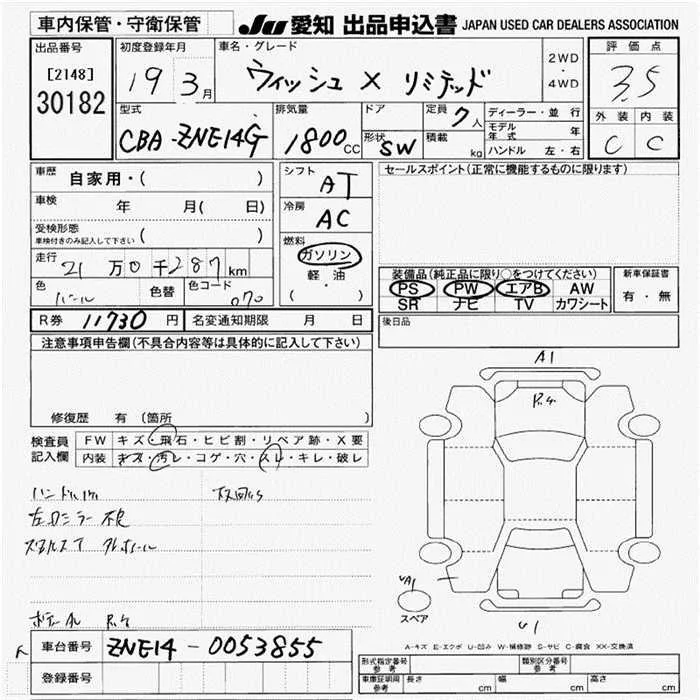 車内保管・守衛保管
JU 愛知 出品申込書 JAPAN USED CAR DEALERS ASSOCIATION
出品番号
[2148]
30182
初度登録年月
19 3月
車名・グレード
ウィッシュ X リミテッド
2WD
・
4WD
評価点
3.5
外装 内装
C C
型式
CBA-ZNE14G
排気量
1800cc
ドア
形状 SW
定員 7人
積載 kg
ディーラー・並行
モデル年式 年
ハンドル 左・右
車歴
自家用・( )
車検
年 月( 日)
受検形態
車検付きのみ記入して下さい ( )
走行
21万0千287km
色
パール
色替
色コード
070
シフト
AT
冷房
AC
燃料
ガソリン
軽・油
( ・ )
セールスポイント(正常に機能するものに限ります)
装備品(純正品に限り○をつけてください)
PS PW エアB AW
SR ナビ TV カワシート
新車保証書
有・無
R券 11730円
名変通知期限 月 日
後日品
注意事項申告欄(不具合内容等は具体的に記入して下さい)
修復歴 有 (箇所 )
検査員記入欄
FW キズ・飛石・ヒビ割・リペア跡・X要
内装 キズ・汚レ・コゲ・穴・スレ・キレ・破レ
左ロミラー不良
A1
スペア
A-キズ E-エクボ U-凹み W-補修跡 S-サビ C-腐食 XX-交換済
車台番号 ZNE14-0053855
登録番号
形式指定番号 参考
類別区分番号 参考
車庫証明用 参考
長さ cm 幅 cm 高さ cm